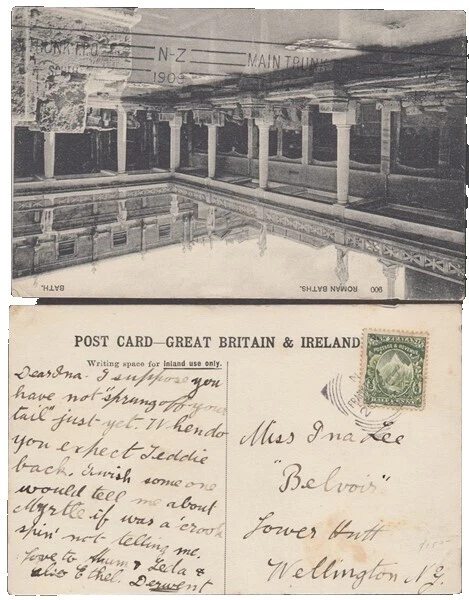 N-Z
MAIN TRUNK
1909
BATH.
900 ROMAN BATHS.
POST CARD—GREAT BRITAIN & IRELAND
Writing space for Inland use only.
Dear Ina. I suppose you
have not "sprung off your
tail" just yet. When do
you expect Teddie
back. I wish some one
would tell me about
Myrtle if was a crook
spin' not telling me.
Love to Mum & Leila &
also Ethel. Derwent
NEW ZEALAND
POSTAGE & REVENUE
HALF PENNY
Miss Ina Lee
"Belvoir"
Lower Hutt
Wellington NZ